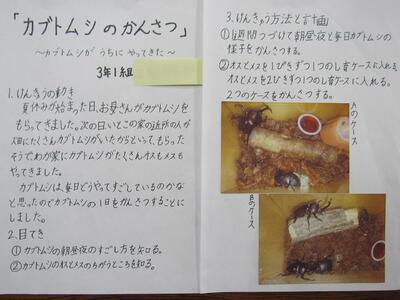 「カブトムシのかんさつ」
〜カブトムシが うちに やってきた〜
3年1組
1.けんきゅうの動き
夏休みが始まった日、お母さんがカブトムシを
もらってきました。次の日いとこの家の近所の人が
大田にたくさんカブトムシがいたからといって、もらった
そうでわが家にカブトムシがたくさんオスもメスも
やってきました。
カブトムシは、毎日どうやってすごしているのかな
と思ったのでカブトムシの1日をかんさつすることに
しました。
2.目てき
①カブトムシの朝昼夜のすごし方を知る。
②カブトムシのオスとメスのちがうところを知る。
3.けんきゅう方法と計画
①1週間つづけて朝昼夜と毎日カブトムシの
様子をかんさつする。
②オスとメスを1ぴきずつ1つのし育ケースに入れる。
オスとメスを2ひきずつ1つのし育ケースに入れる。
2つのケースをかんさつする。
Aのケース
Bのケース